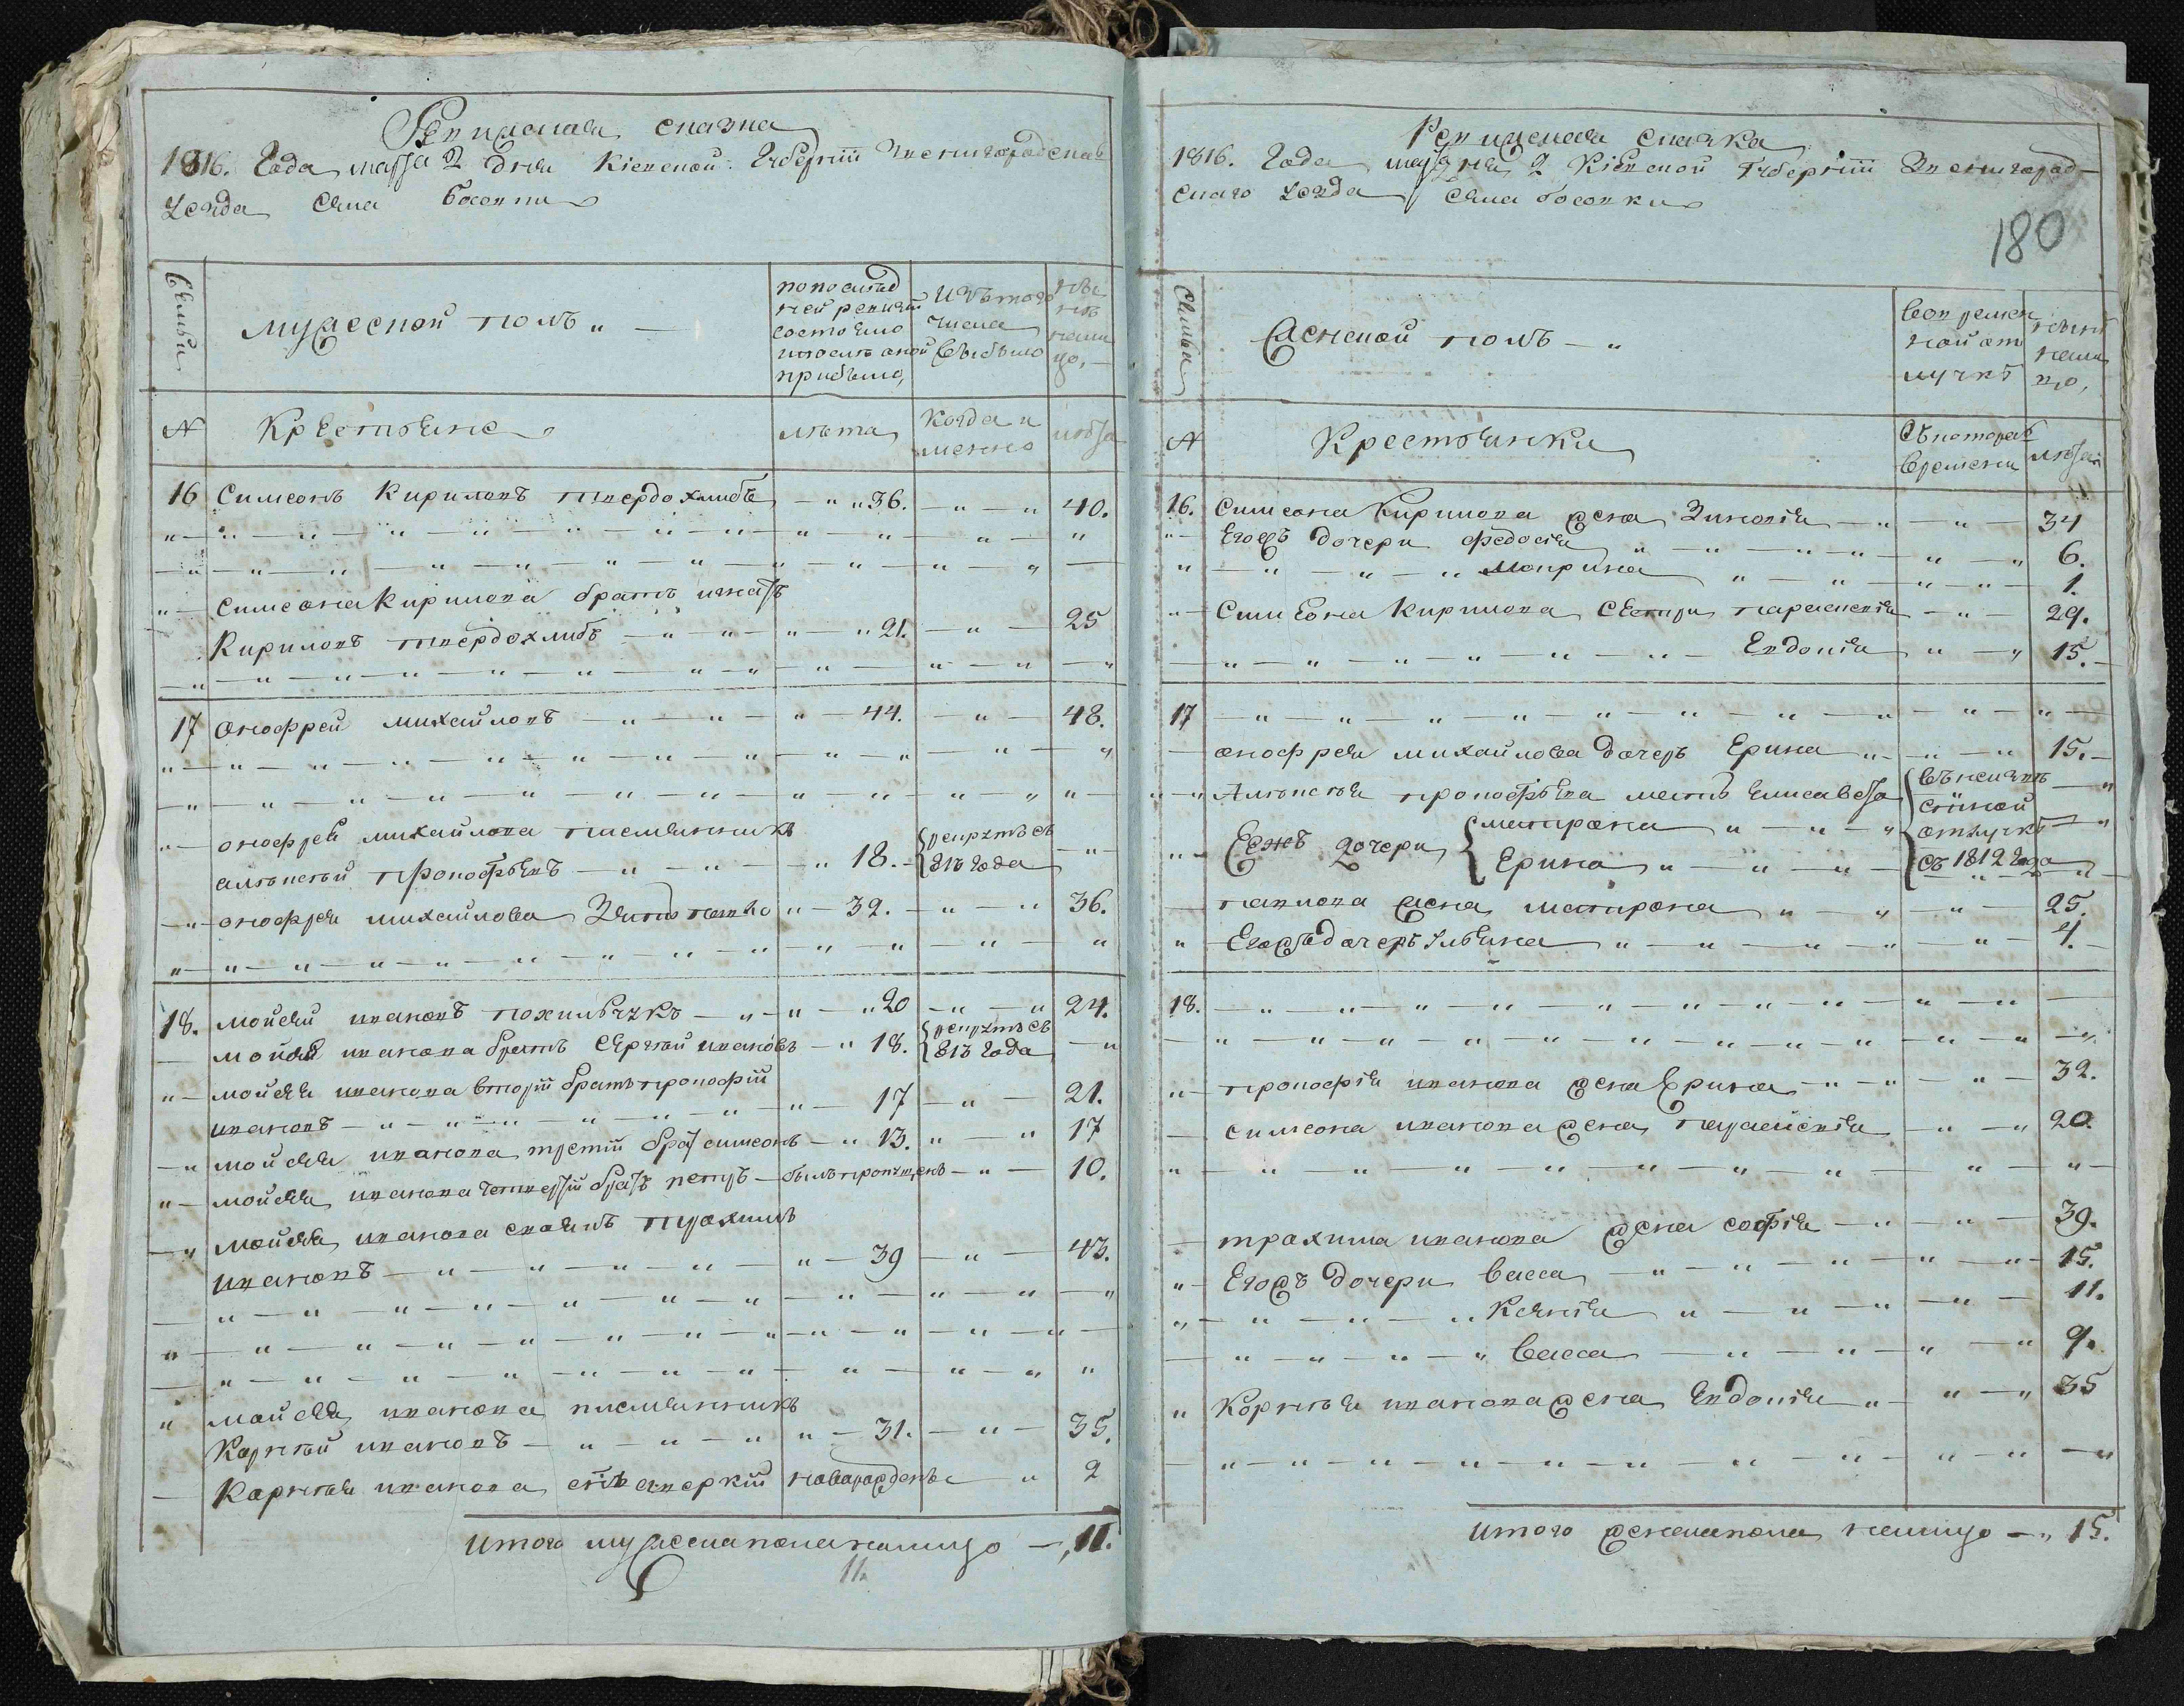 Ревизская сказка
1816. Года марта 2 дня Кіевской Губерніи Звенигородскаго
уезда села Босовки
Семьи
мужеской полъ „ —
по последней ревизіи состояло и после оной прибыло,
Изъ того числа выбыло
ныне на лицо, —
N
Крестьяне
лета
когда имянно
лета
16 Симеонъ Кириловъ твердохлибъ — „ „ 36. — „ — „ 40.
„ — Симеона Кирилова братъ игнатъ
Кириловъ твердохлибъ — „ — „ — „ — „ 21. — „ — 25
17 Онофрей михайловъ — „ — „ — „ — 44. — „ — 48.
„ — онофрея михайлова писменникъ
алексей прокофьевъ — „ — „ — „ 18. — рекрутъ съ 813 года — „ —
— „ — онофрея михайлова зять павло „ — 32. — „ — „ 36.
18. мойсей ивановъ похильчукъ — „ — „ — „ 20 — „ — „ 24.
— мойсея иванова братъ Сергей ивановъ — „ 18. рекрутъ съ 813 года — „
„ — мойсея иванова вторій братъ прокофій
ивановъ — „ — „ — „ — „ — „ — „ — 17 — „ — 21.
— „ мойсея иванова третій братъ симеонъ — „ 13. „ — „ 17
„ — мойсея иванова четвертій братъ петръ — былъ пропущенъ — „ — 10.
— „ мойсея иванова своякъ трохимъ
ивановъ — „ — „ — „ — „ — „ — 39 — „ — 43.
„ мойсея иванова писменникъ
Корней ивановъ — „ — „ — „ „ — 31. — „ — 35.
— Корнея иванова сынъ аверкій новорожденъ — „ 2
Итого мужеска пола налицо — „ 11.
11.
Ревизская сказка
1816. Года марта дня 2 Кіевской Губерніи Звенигород-
скаго уезда села босовки
180
Семьи
Женской полъ — „
Во временной отлучке
ныне на лицо,
N
Крестьянки
Съ котораго времени
лета
16. Симеона Кирилова жена Зиновія — „ — „ — 34
„ — Егожъ дочери федосія „ — „ — „ — „ — „ — „ 6.
„ — „ — „ — „ Мокрина „ — „ — „ — „ — 1.
„ — Симеона Кирилова Сестри параскевія — „ — 29.
— „ — „ — „ — „ — „ — „ — Евдокія „ — „ 15. —
17 — „ — „ — „ — „ — „ — „ — „ — „ — „ — „ —
— онофрея михайлова дочерь Ерина „ — „ — „ 15. —
„ — „ Алексея прокофьева мать Елисавета
„ — Еяжъ дочери матрона „ — „ — „
Ерина „ — „ — „
отлучке
съ 1812 года
— павлова жена матрона „ — „ — „ — 25.
„ Егожъ дочерь ульяна „ — „ — „ — „ — „ — 4.
18. — „ — „ — „ — „ — „ — „ — „ — „ — „ — „ —
„ — прокофія иванова жена Ерина — „ — „ — „ — 32.
— симеона иванова жена параскевія — „ — „ 20
— трохима иванова жена софія — „ — „ — 39.
„ — Егожъ дочери васса — „ — „ — „ — „ — „ — 15.
„ — „ — „ — „ Ксенія „ — „ — „ — „ — 11.
— „ — „ — „ — „ васса — „ — „ — „ — „ 9.
„ Корнея иванова жена Евдокія „ — „ — „ 35
Итого женска пола налицо — „ 15.